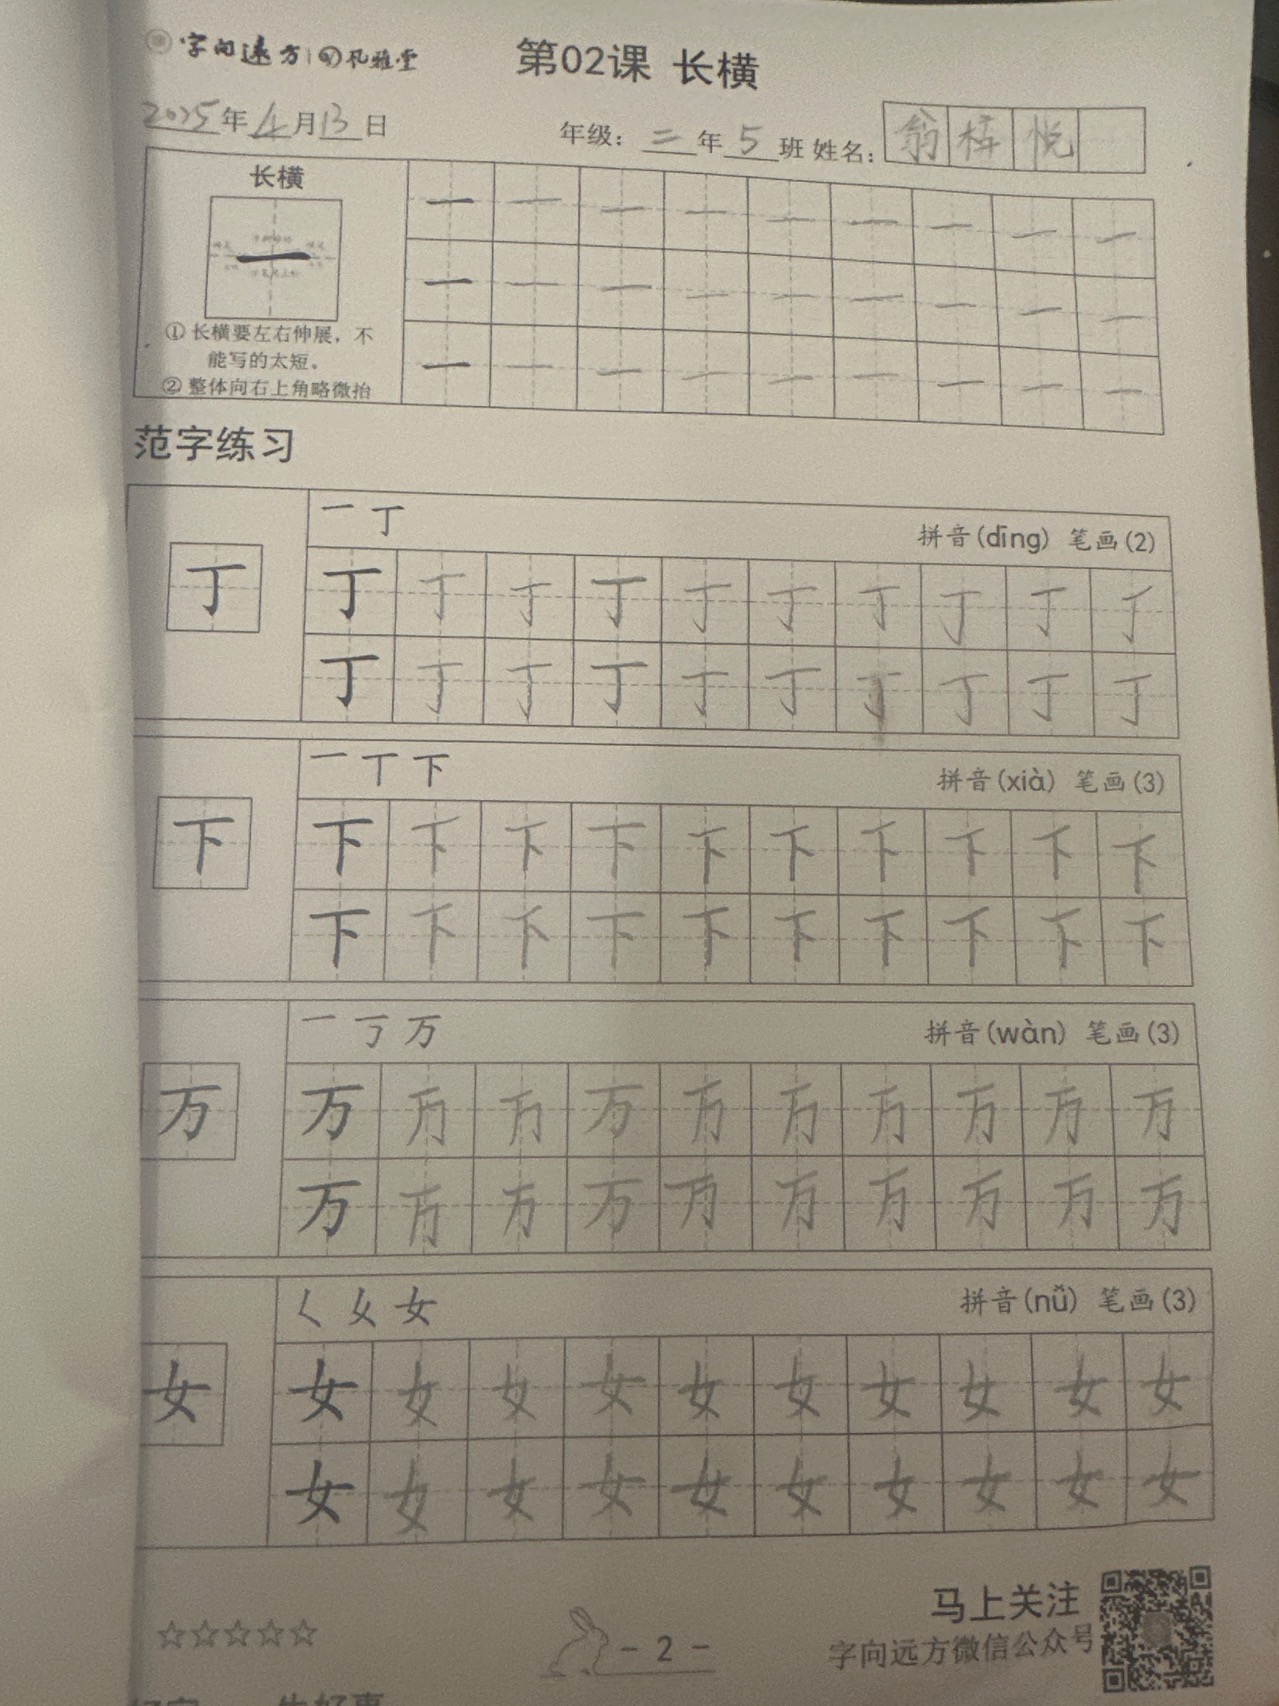 字向远方 风雅堂
第02课 长横
2025年4月13日
年级：二年5班 姓名：翁梓悦
长横
一 一 一 一 一 一 一 一 一 一
一 一 一 一 一 一 一 一 一
一 一 一 一 一 一 一 一 一
① 长横要左右伸展，不
能写的太短。
② 整体向右上角略微抬
范字练习
一 丁
拼音(dīng) 笔画(2)
丁 丁 丁 丁 丁 丁 丁 丁 丁 丁 丁
丁 丁 丁 丁 丁 丁 丁 丁 丁 丁
一 丅 下
拼音(xià) 笔画(3)
下 下 下 下 下 下 下 下 下 下 下
下 下 下 下 下 下 下 下 下 下
一 丂 万
拼音(wàn) 笔画(3)
万 万 万 万 万 万 万 万 万 万 万
万 万 万 万 万 万 万 万 万 万
女
拼音(nǚ) 笔画(3)
女 女 女 女 女 女 女 女 女 女 女
女 女 女 女 女 女 女 女 女 女
马上关注
字向远方微信公众号
- 2 -